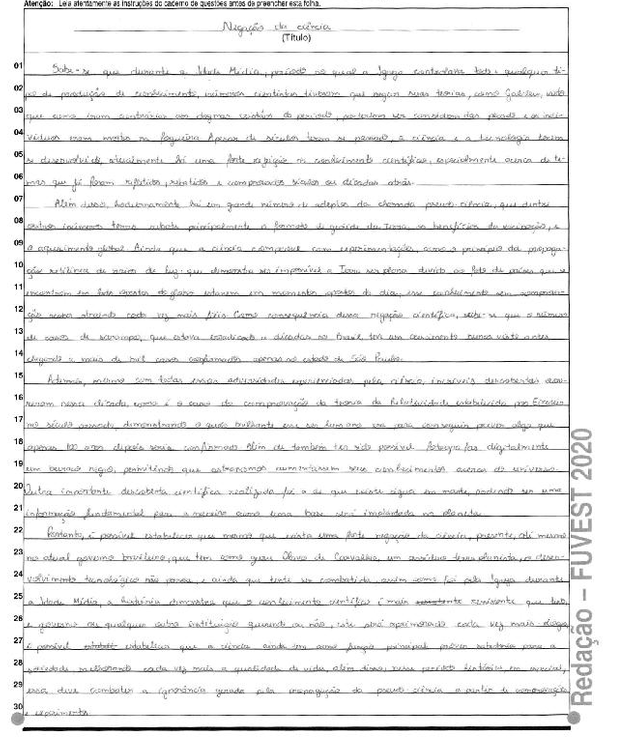 Atenção: Leia atentamente as instruções do caderno de questões antes de preencher esta folha.
Negação da ciência
(Título)
01 Sabe-se que durante a Idade Média, período no qual a Igreja controlava todo e qualquer ti-
02 po de produção de conhecimento, inúmeros cientistas tiveram que negar suas teorias, como Galileu, visto
03 que como eram contrárias aos dogmas cristãos do período, poderiam ser consideradas pecado e os indi-
04 víduos eram mortos na fogueira. Apesar de séculos terem se passado, a ciência e a tecnologia terem
05 se desenvolvido, atualmente há uma forte rejeição ao conhecimento científico, especialmente acerca de te-
06 mas que já foram refletidos, rebatidos e comprovados séculos ou décadas atrás.
07 Além disso, hodiernamente há um grande número de adeptos da chamada pseudo ciência, que dentre
08 outros inúmeros temas rebate principalmente o formato da Terra, os benefícios da vacinação, e
09 o aquecimento global. Ainda que a ciência comprove com experimentações, como o princípio da propaga-
10 ção retilínea de raios de luz, que demonstra ser impossível a Terra ser plana devido ao fato de países que se
11 encontram em lados opostos do globo estarem em momentos opostos do dia, esse conhecimento sem comprova-
12 ção cada vez mais Como consequência dessa negação científica, sabe-se que o número
13 de casos de sarampo, que estava erradicado a décadas no Brasil, teve um aumento nunca visto antes
14 chegando a mais de mil casos confirmados apenas no estado de São Paulo.
15 Ademais, mesmo com todas essas adversidades experienciadas pela ciência, incríveis descobertas ocor-
16 reram nessa década, como é o caso da comprovação da teoria da Relatividade estabelecida por Einstein
17 no século passado, demonstrando o quão brilhante esse ser humano era para conseguir prever algo que
18 apenas 100 anos depois seria confirmado. Além de também ter sido possível fotografar digitalmente
19 um buraco negro, permitindo que astrônomos aumentassem seus conhecimentos acerca do universo.
20 Outra importante descoberta científica realizada foi a de que existe água em marte, podendo ser uma
21 informação fundamental para a maneira como uma base será implantada no planeta.
22 Portanto, é possível estabelecer que mesmo que exista uma forte negação da ciência, presente, até mesmo
23 no atual governo brasileiro, que tem como guru Olavo de Carvalho, um assíduo terraplanista, o desen-
24 volvimento tecnológico não parou, e ainda que tente ser combatida assim como foi pela Igreja durante
25 a Idade Média, a história demonstra que o conhecimento científico é mais resistente que tudo,
26 e governos ou qualquer outra instituição querendo ou não, este será aprimorado cada vez mais. Logo
27 é possível estabelecer que a ciência ainda tem como função principal para a
28 sociedade melhorando cada vez mais a qualidade de vida, além disso, nesse período histórico em especial,
29 essa deve combater a ignorância gerada pela propagação da pseudo ciência a partir de comprovação
30 e experimentos.
Redação – FUVEST 2020